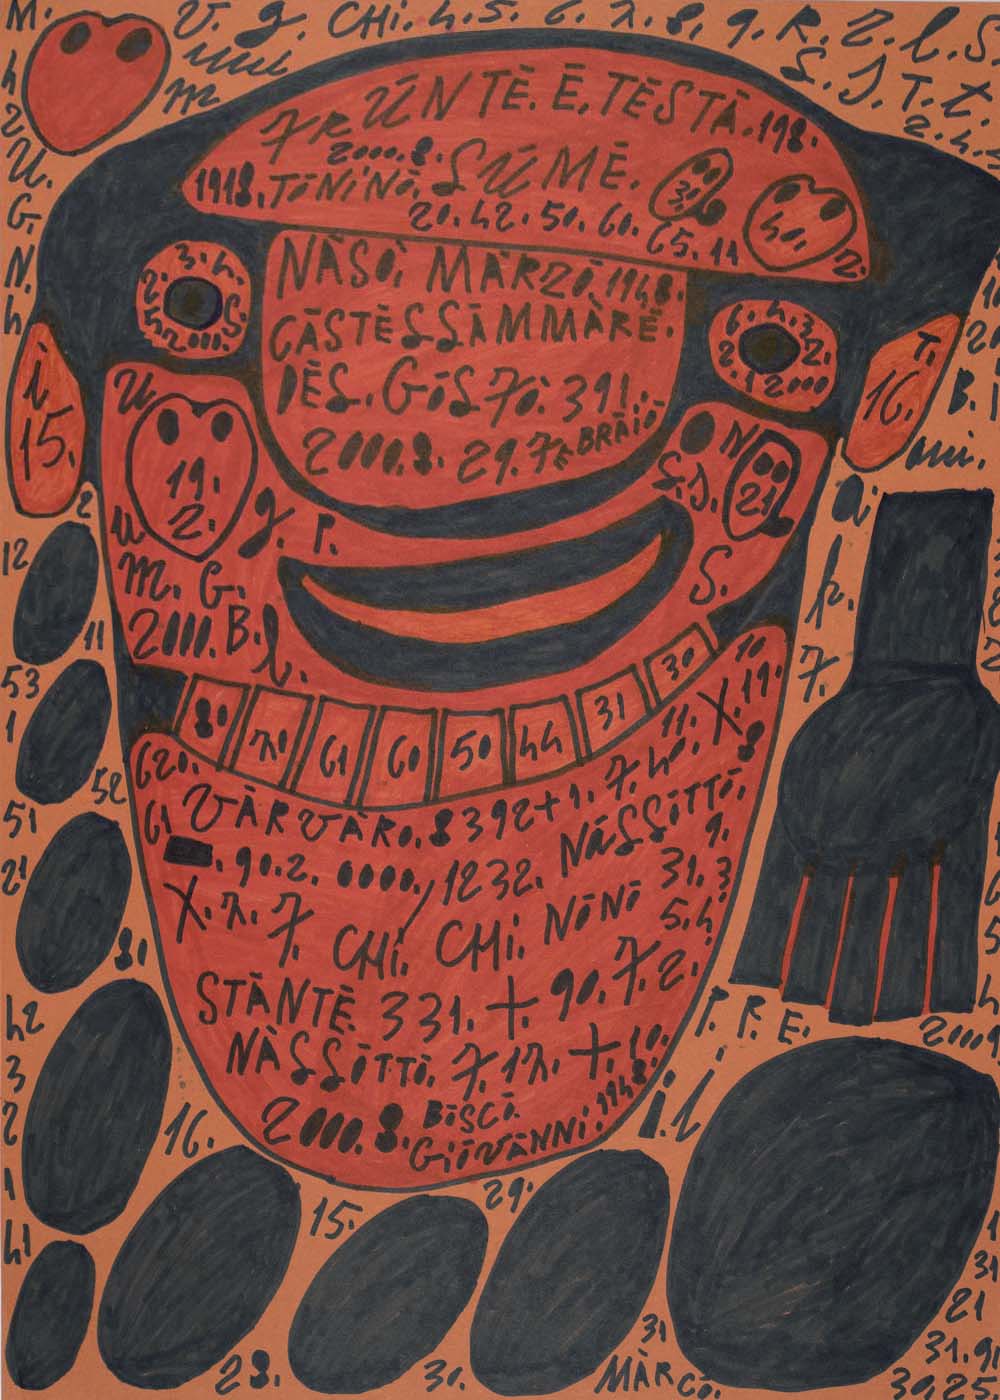 M. V. g. CHi. h. 5. 6. 7. 8. 9. R. Z. l. S.
S. J. T. t.
2. h.
h
2
U.
G.
N.
h
7R ŪNTĒ. Ē. TĒSTĀ. 198.
2000. 8. SŪMĒ.
1918. TŌNiNŌ.
20. 42. 50. 60. 65. 11
30
40.
2.
NĀSŌ. MĀRZŌ 1948.
CĀSTĒSSĀMMĀRĒ.
DĒS. GŌSFŌ. 391.
2000. 8. 29. FĒBRĀiŌ
2. 3. h. S.
h2 2000
6. h. 3. 2.
2. 1 2000
i
15.
T.
16.
B.
U
19.
2.
g. P.
N
S. J.
21
S.
u
m. G.
2000. B. l.
a.
l
p.
7.
80 70 61 60 50 44 31 30
10
620.
11. X. 19.
61 VĀRVĀRŌ. 8392+1. 7. h0. 8
. 90. 2. 0000. / 1232. NĀSSŌTTŌ.
9.
X. 7. 7. CHi. CHi. NŌNŌ 31. 3
5. h
STĀNTĒ. 331. +. 90. 7. 2.
NĀSSŌTTŌ. 7. 17. +. 10.
2000. 8. BŌSCŌ.
GiŌVĀNNi. 1948.
2
12
11
53
1
52
51
21
8.
h2
3
2
1
h1
16.
15.
29.
28.
30.
31
MĀRCŌ.
P. F. E.
i. l
2009
31
21
31. 9
30. 25